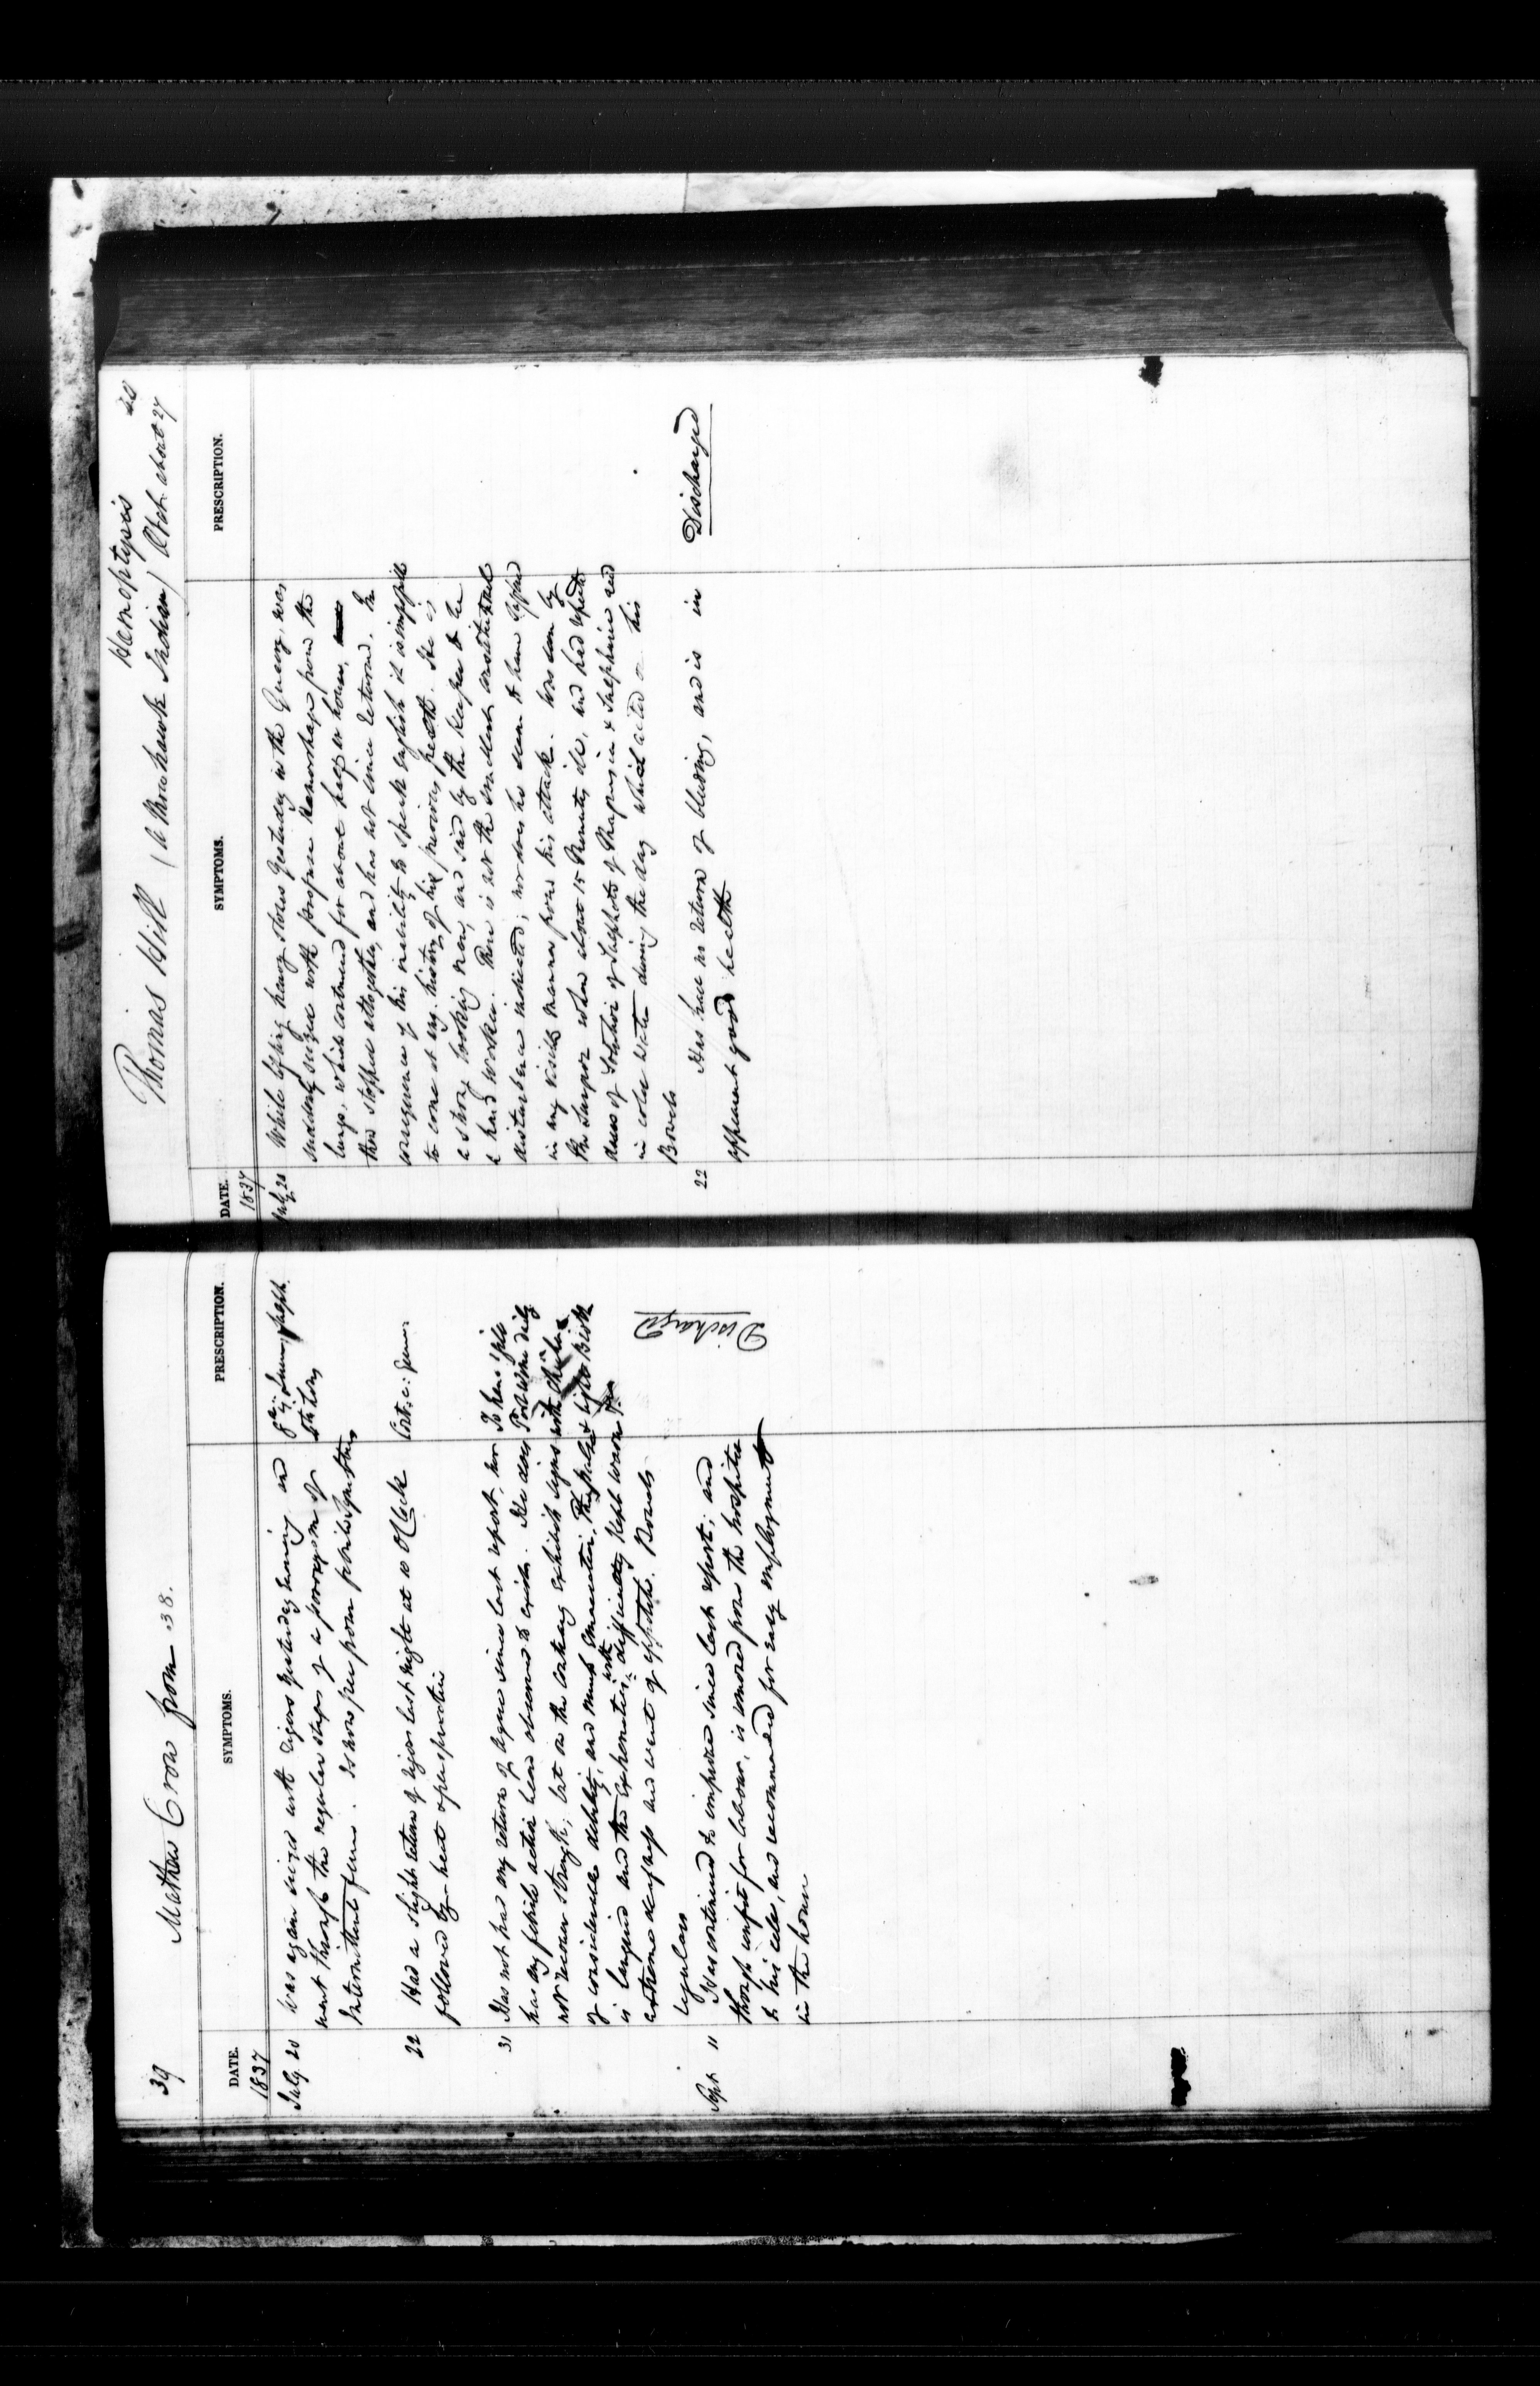 39
Mathew Crow from 38.
DATE.
SYMPTOMS.
PRESCRIPTION.
1837
July 20 Was again seized with rigors yesterday evening and
went through the regular stages of a paroxysm of
Intermittent fever. Is now free from febrile symptoms
22 Had a slight return of rigors last night at 10 OClock
followed by heat & perspiration
31 Has not had any return of ague since last report, nor
has any febrile action been observed to exist. He does
not recover strength; but on the contrary exhibits signs
of considerable debility, and much emaciation. The pulse
is languid and the Extremities with difficulty kept warm
extreme and want of appetite. Bowels
regular
Sept 11 Has continued to improve since last report; and
though unfit for labour, is removed from the hospital
to his cell, and recommended for easy employment
in the house
Port Wine daily
Discharged
Hemoptysis
40
Thomas Hill (A Mowhawk Indian) Aetat about 27
DATE.
SYMPTOMS.
PRESCRIPTION.
1837
July 20 While lifting heavy stones yesterday in the Quarry, was
suddenly seized with profuse Hemorrhage from the
lungs, which continued for about half an hour,
then stopped altogether, and has not since returned. In
consequence of his inability to speak english it is impossible
to come at any history of his previous health. He is
a strong looking man, and said by the Keeper to be
a hard worker. There is not the smallest constitutional
disturbance indicated; nor does he seem to have suffered
in any visible manner from his attack. Was seen by
the Surgeon when about 15 Minutes ill, and had repeated
doses of Solution of Sulphate of Magnesia & Sulphuric acid
in cold water during the day which acted on his
Bowels
22 Has had no return of bleeding, and is in
apparent good health
Discharged